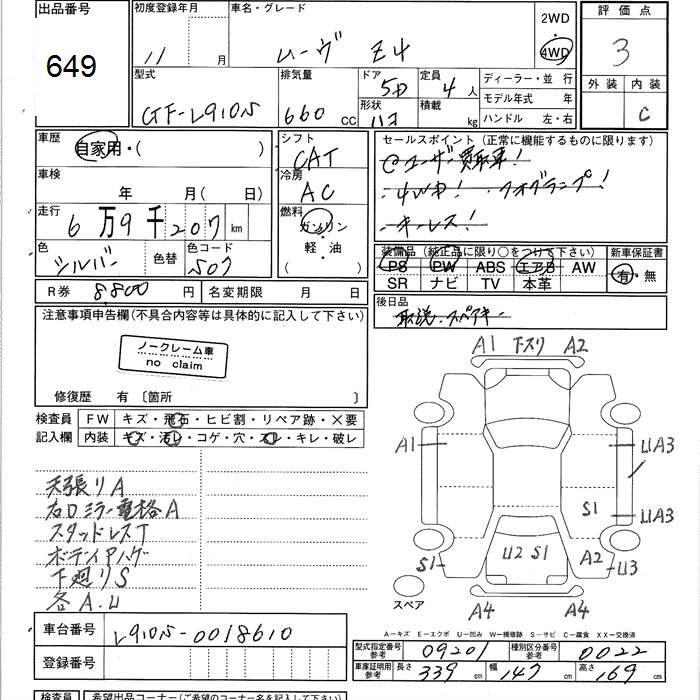 出品番号
649
初度登録年月
11 月
車名・グレード
ムーヴ Z4
2WD
4WD
評価点
3
外装 内装
C
型式
GF-L910S
排気量
660 CC
ドア
5D
形状
定員
4 人
積載
kg
ディーラー・並 行
モデル年式 年
ハンドル 左・右
車歴
自家用・( )
車検
年 月( 日)
走行
6 万 9 千 207 km
色
シルバー 色替
色コード
S07
シフト
CAT
冷房
AC
燃料
ガソリン
軽・油
( )
セールスポイント(正常に機能するものに限ります)
@ユーザー買取車!
・4WD! ・フォグランプ!
・キーレス!
装備品(純正品に限り○をつけて下さい)
PS PW ABS エアB AW
SR ナビ TV 本革
新車保証書
有・無
R券 8800 円
名変期限 月 日
後日品
取説・スペアキー
注意事項申告欄(不具合内容等は具体的に記入して下さい)
ノークレーム車
no claim
修復歴 有〔箇所 〕
検査員
記入欄
FW キズ・飛石・ヒビ割・リペア跡・×要
内装 キズ・汚レ・コゲ・穴・スレ・キレ・破レ
天張りA
右Dミラー電格A
スタッドレスT
ボディアハゲ
下廻りS
各A.U
A1 下スリ A2
A1
UA3
S1
UA3
U2 S1
A2
S1
U3
A4
A4
スペア
車台番号
L910S-0018610
登録番号
A-キズ E-エクボ U-凹み W-補修跡 S-サビ C-腐食 XX-交換済
型式指定番号
参考
09201
種別区分番号
参考
0022
車庫証明用
参考
長さ 339 cm
幅 147 cm
高さ 169 cm
検査員
希望出品コーナー(ご希望のコーナー名を記入下さい)